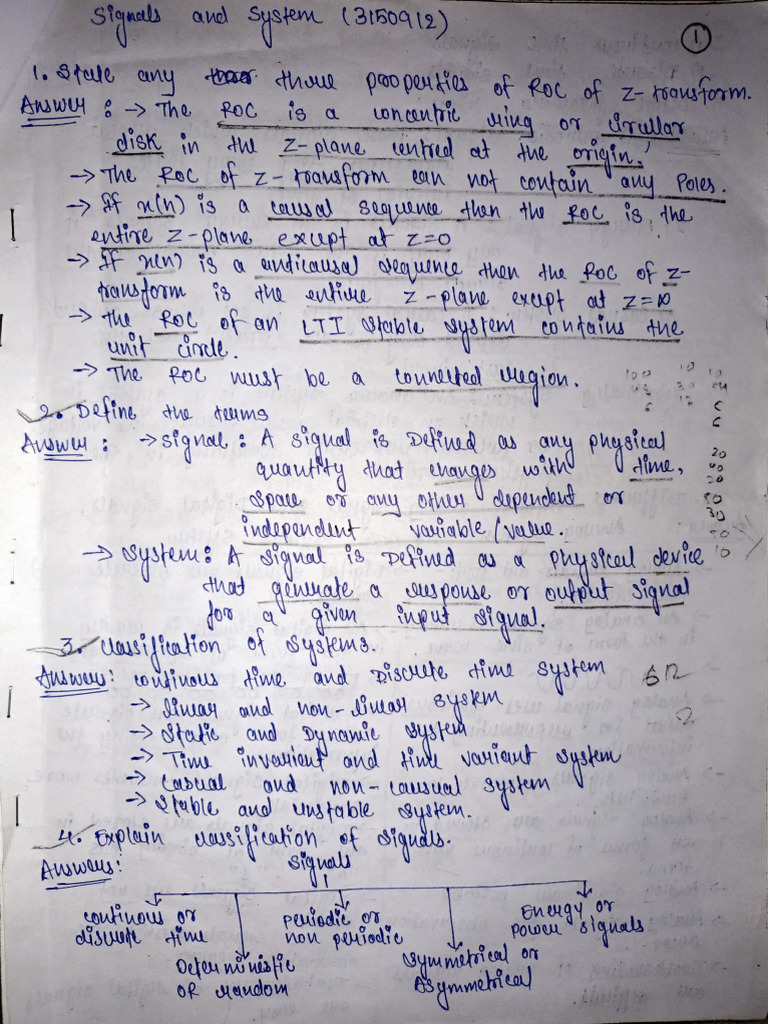 Signals and System (3150912)
1
1. State any three properties of ROC of Z-transform.
Answer : → The ROC is a concentric ring or cirullar
disk in the z-plane centred at the origin.
→ The ROC of z-transform can not contain any Poles.
→ If x(n) is a causal sequence then the ROC is the
entire z-plane except at z=0
→ If x(n) is a anticausal sequence then the ROC of z-
transform is the entire z-plane except at z=∞
→ The ROC of an LTI stable system contains the
unit circle.
→ The ROC must be a connected region.
2. Define the terms
Answer : → signal : A signal is Defined as any physical
quantity that changes with time,
space or any other dependent or
independent variable/value.
→ System : A signal is Defined as a physical device
that generate a response or output signal
for a given input signal.
3. classification of systems.
Answers: continous time and Discrete time system
→ linear and non-linear system
→ Static and Dynamic system
→ Time invariant and time variant system
→ Casual and non-causual system
→ Stable and unstable system.
4. Explain classification of signals.
Answers:
signals
continous or
discrete time
Deterministic
OR random
Periodic or
non periodic
Symmetrical or
Asymmetrical
Energy or
Power signals